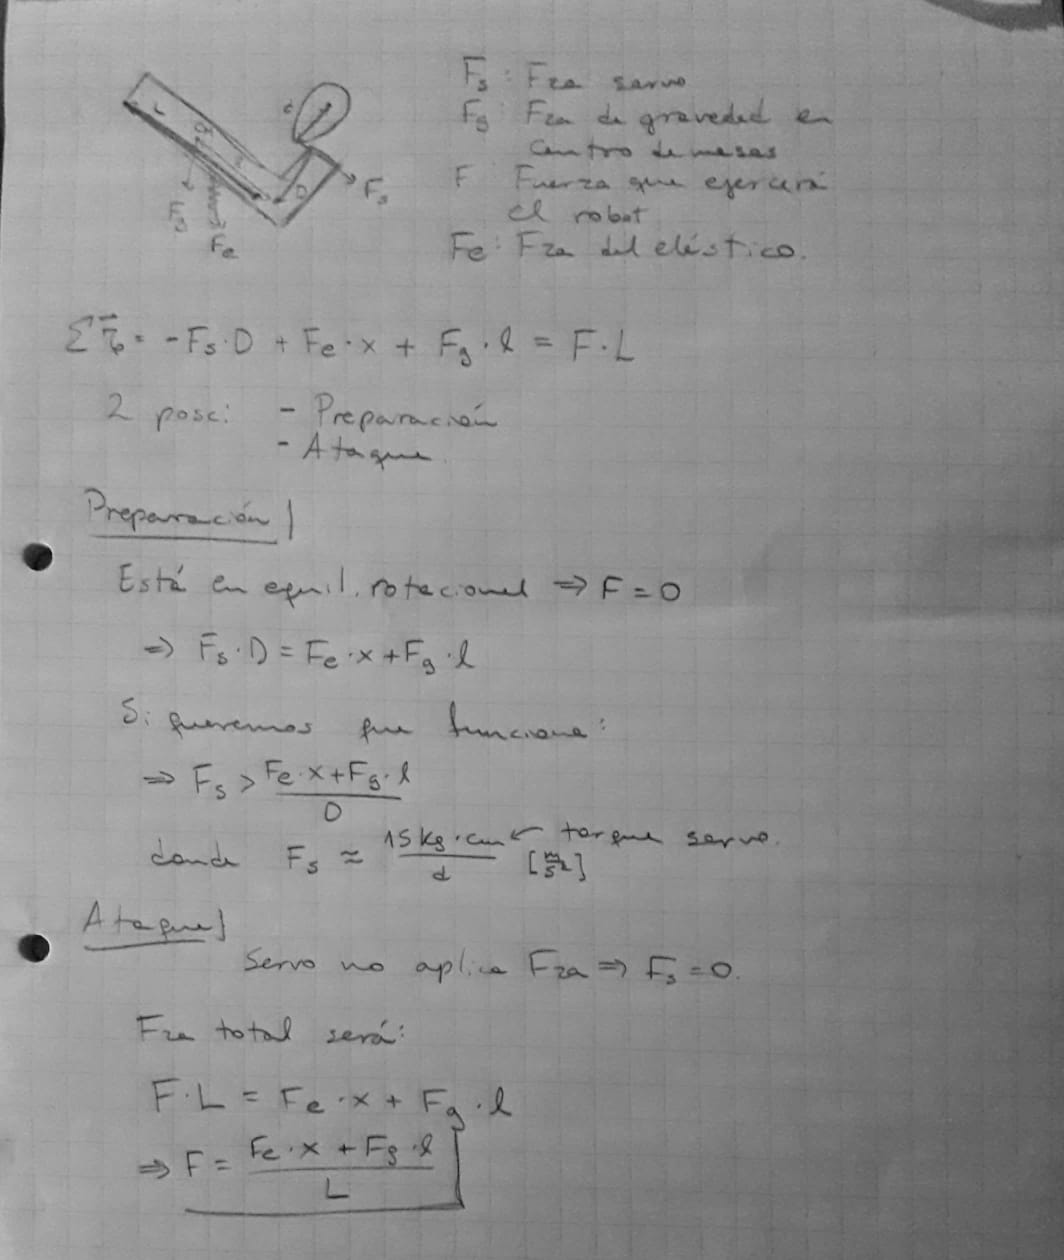 Fs : Fza servo
Fg : Fza de gravedad en
centro de masas
F Fuerza que ejercerá
el robot
Fe : Fza del elástico.
L
d
D
Fs
Fg
Fe
Σ τo = -Fs·D + Fe·x + Fg·l = F·L
2 posc: - Preparación
- Ataque
Preparación
Está en equil. rotacional ⇒ F = 0
⇒ Fs·D = Fe·x + Fg·l
Si queremos que funcione:
⇒ Fs > Fe·x + Fg·l / D
donde Fs ≈ 15 kg·cm / d ← torque servo. [m/s²]
Ataque
Servo no aplica Fza ⇒ Fs = 0.
Fza total será:
F·L = Fe·x + Fg·l
⇒ F = Fe·x + Fg·l / L